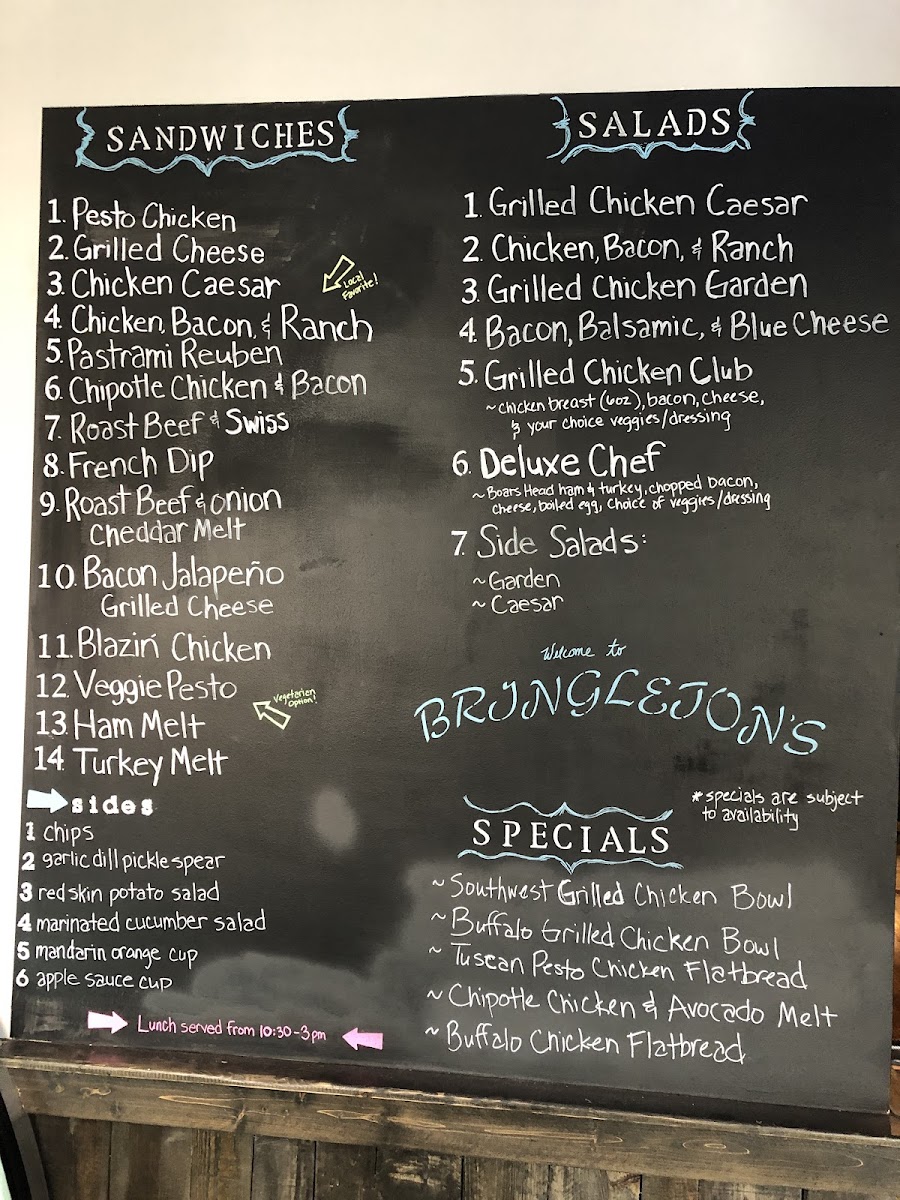 SANDWICHES
1. Pesto Chicken
2. Grilled Cheese
3. Chicken Caesar
Local
Favorite!
4. Chicken, Bacon, & Ranch
5. Pastrami Reuben
6. Chipotle Chicken & Bacon
7. Roast Beef & Swiss
8. French Dip
9. Roast Beef & Onion
Cheddar Melt
10. Bacon Jalapeño
Grilled Cheese
11. Blazin' Chicken
12. Veggie Pesto
Vegetarian
Option!
13. Ham Melt
14. Turkey Melt
sides
1 chips
2 garlic dill pickle spear
3 red skin potato salad
4 marinated cucumber salad
5 mandarin orange cup
6 apple sauce cup
Lunch served from 10:30-3pm
SALADS
1. Grilled Chicken Caesar
2. Chicken, Bacon, & Ranch
3. Grilled Chicken Garden
4. Bacon, Balsamic, & Blue Cheese
5. Grilled Chicken Club
~chicken breast (6oz), bacon, cheese,
& your choice veggies/dressing
6. Deluxe Chef
~Boars Head ham & turkey, chopped bacon,
cheese, boiled egg, choice of veggies/dressing
7. Side Salads:
~Garden
~Caesar
Welcome to
BRINGLETON'S
*specials are subject
to availability
SPECIALS
~Southwest Grilled Chicken Bowl
~Buffalo Grilled Chicken Bowl
~Tuscan Pesto Chicken Flatbread
~Chipotle Chicken & Avocado Melt
~Buffalo Chicken Flatbread